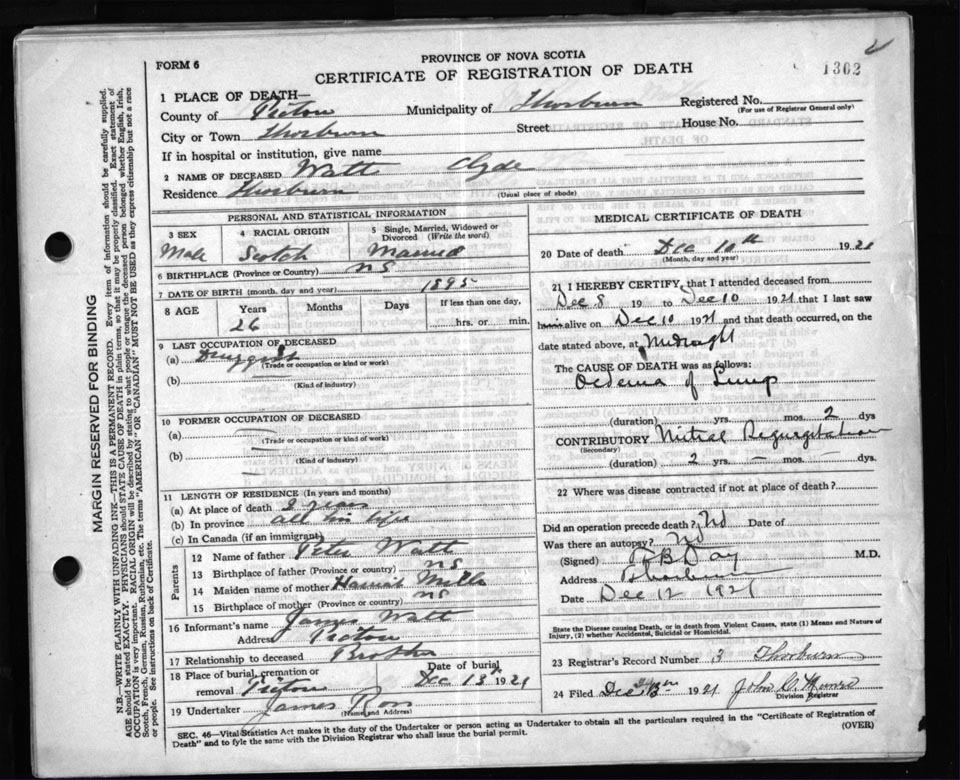 FORM 6
PROVINCE OF NOVA SCOTIA
CERTIFICATE OF REGISTRATION OF DEATH
1302
MARGIN RESERVED FOR BINDING
N.B.—WRITE PLAINLY WITH UNFADING INK—THIS IS A PERMANENT RECORD. Every item of information should be carefully supplied.
AGE should be stated EXACTLY. PHYSICIANS should STATE CAUSE OF DEATH in plain terms, so that it may be properly classified. Exact statement of
OCCUPATION is very important. RACIAL ORIGIN will be described by stating to what people or tongue the deceased person belonged whether English, Irish,
Scotch, French, German, Russian, Ruthenian, etc. The terms "AMERICAN" OR "CANADIAN" MUST NOT BE USED as they express citizenship but not a race
or people. See instructions on back of Certificate.
1 PLACE OF DEATH—
County of Pictou Municipality of Thorburn Registered No.
(For use of Registrar General only)
City or Town Thorburn Street House No.
If in hospital or institution, give name
2 NAME OF DECEASED Watt Clyde
Residence Thorburn
(Usual place of abode)
PERSONAL AND STATISTICAL INFORMATION
3 SEX
Male
4 RACIAL ORIGIN
Scotch
5 Single, Married, Widowed or
Divorced (Write the word)
Married
6 BIRTHPLACE (Province or Country) NS
7 DATE OF BIRTH (month, day and year) 1895
8 AGE Years Months Days If less than one day,
26 hrs. or min.
9 LAST OCCUPATION OF DECEASED
(a) Druggist
(Trade or occupation or kind of work)
(b)
(Kind of industry)
10 FORMER OCCUPATION OF DECEASED
(a) —
(Trade or occupation or kind of work)
(b) —
(Kind of industry)
11 LENGTH OF RESIDENCE (In years and months)
(a) At place of death 2 years
(b) In province all his life
(c) In Canada (if an immigrant)
Parents
12 Name of father Peter Watt
13 Birthplace of father (Province or country) NS
14 Maiden name of mother Mills
15 Birthplace of mother (Province or country) NS
16 Informant's name James Watt
Address Pictou
17 Relationship to deceased Brother
18 Place of burial, cremation or Date of burial
removal Pictou Dec 13 1921
19 Undertaker James Ross
(Name and Address)
MEDICAL CERTIFICATE OF DEATH
20 Date of death Dec 10th 1921
(Month, day and year)
21 I HEREBY CERTIFY, that I attended deceased from
Dec 8 19 to Dec 10 1921 that I last saw
him alive on Dec 10 1921 and that death occurred, on the
date stated above, at Midnight
The CAUSE OF DEATH was as follows:
Oedema of Lungs
(duration) yrs. mos. 2 dys
CONTRIBUTORY Mitral Regurgitation
(Secondary)
(duration) 2 yrs. — mos. — dys.
22 Where was disease contracted if not at place of death?
Did an operation precede death? No Date of
Was there an autopsy? No
(Signed) Day M.D.
Address Thorburn
Date Dec 12 1921
State the Disease causing Death, or in death from Violent Causes, state (1) Means and Nature of
Injury, (2) whether Accidental, Suicidal or Homicidal.
23 Registrar's Record Number 3 Thorburn
24 Filed Dec 1921 John C. Munro
Division Registrar
SEC. 46—Vital Statistics Act makes it the duty of the Undertaker or person acting as Undertaker to obtain all the particulars required in the "Certificate of Registration of
Death" and to fyle the same with the Division Registrar who shall issue the burial permit. (OVER)